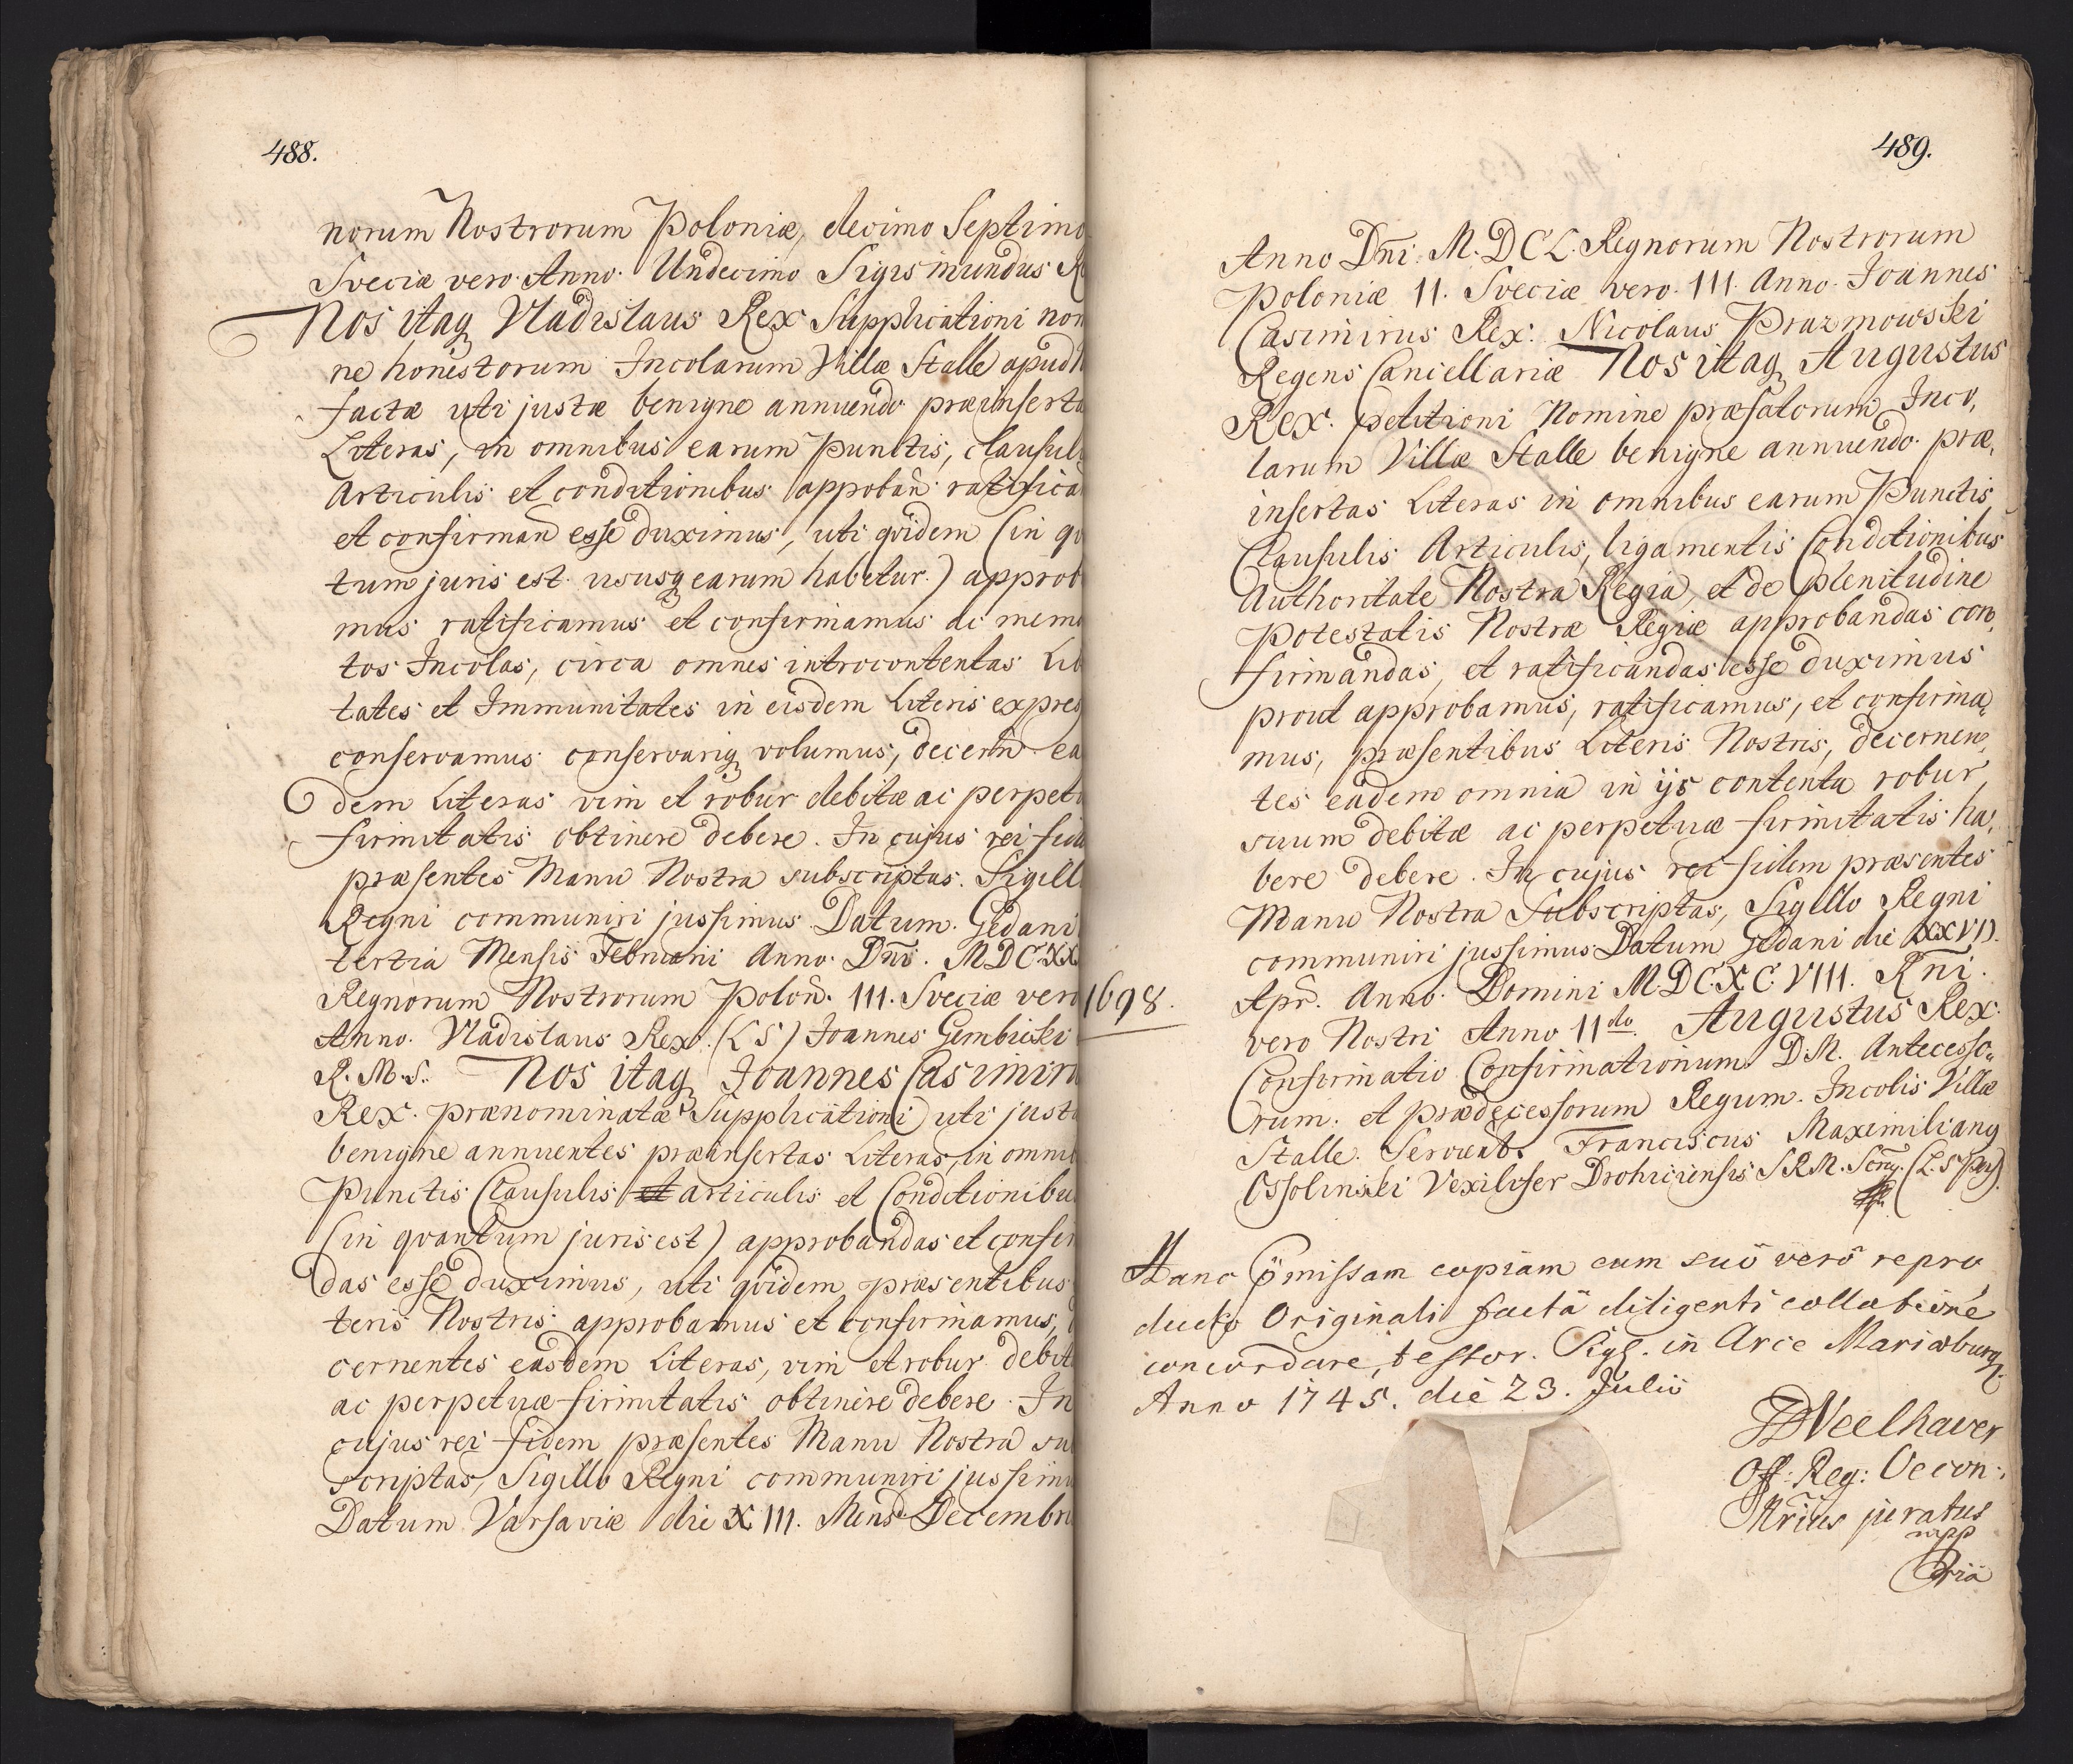 488.
norum Nostrorum Poloniæ, decimo Septimo
Sveciæ vero Anno. Undecimo Sigismundus R
Nos itaq Vladislaus Rex Supplicationi nom
ne honestorum Incolarum Villæ Stalle apud N
factæ uti justæ benigne annuendo præinserta
Literas, in omnibus earum Punctis, clausul
Articulis et conditionibus approban̄ ratifica
et confirman̄ esse duximus, uti qvidem (in qv
tum juris est ususq earum habetur.) approb
mus ratificamus et confirmamus ac memo
tos Incolas, circa omnes introcontentas Lib
tates et Immunitates in eisdem Literis expres
conservamus conservariq volumus, decern̄ ea
dem Literas vim et robur debitæ ac perpetu
firmitatis obtinere debere. In cujus rei fide
præsentes Manu Nostra subscriptas. Sigill
Regni communiri jussimus Datum. Gedani
tertia Mensis Februarii Anno. Dn̄i. MDCXX
Regnorum Nostrorum Polon̄. III. Sveciæ vero
Anno. Vladislaus Rex. (LS) Joannes Gembicki
R. M. S. Nos itaq Joannes Casimiru
Rex. prænominatæ Supplicationi uti justæ
benigne annuentes præinsertas Literas, in omni
Punctis Clausulis et articulis et Conditionibu
(in qvantum juris est) approbandas et confir
das esse duximus, uti qvidem præsentibus
teris Nostris approbamus et confirmamus,
cernentes easdem Literas, vim et robur debit
ac perpetuæ firmitatis obtinere debere. In
cujus rei fidem præsentes Manu Nostra su
scriptas, Sigillo Regni communiri jussimu
Datum Varsaviæ die XIII. Mens. Decembri
489.
Anno Dn̄i. M.DCL. Regnorum Nostrorum
Poloniæ II. Sveciæ vero. III. Anno. Joannes
Casimirus Rex. Nicolaus Prazmowski
Regens Cancellariæ Nos itaq Augustus
Rex. petitioni Nomine præfatorum Inco,
larum Villæ Stalle benigne annuendo præ,
insertas Literas in omnibus earum Punctis
Clausulis Articulis, ligamentis Conditionibus
Authoritate Nostra Regia, et de plenitudine
Potestatis Nostræ Regiæ approbandas con,
firmandas, et ratificandas esse duximus
prout approbamus, ratificamus, et confirma,
mus, præsentibus Literis Nostris, decernen,
tes eadem omnia in ijs contenta robur
suum debitæ ac perpetuæ firmitatis ha,
bere debere. In cujus rei fidem præsentes
Manu Nostra Subscriptas, Sigillo Regni
communiri jussimus Datum Gedani die XXVI).
1698.
Apr̄. Anno. Domini M.DC.XC.VIII. Rn̄i.
vero Nostri Anno II do. Augustus Rex.
Confirmatio Confirmationum D.M. Antecesso,
rum. et prædecessorum Regum. Incolis Villæ
Stalle. Servient. Franciscus Maximilianq
Ossolinski Vexilifer Drohiciensis S.R.M. (L.S.
Hanc missam copiam cum suo vero repro
ducto Originali facta diligenti collatione
concordare, testor. Sigl. in Arce Mariæburg.
Anno 1745. die 23. Julii
Off: Reg: Oecon:
juratus
mpp